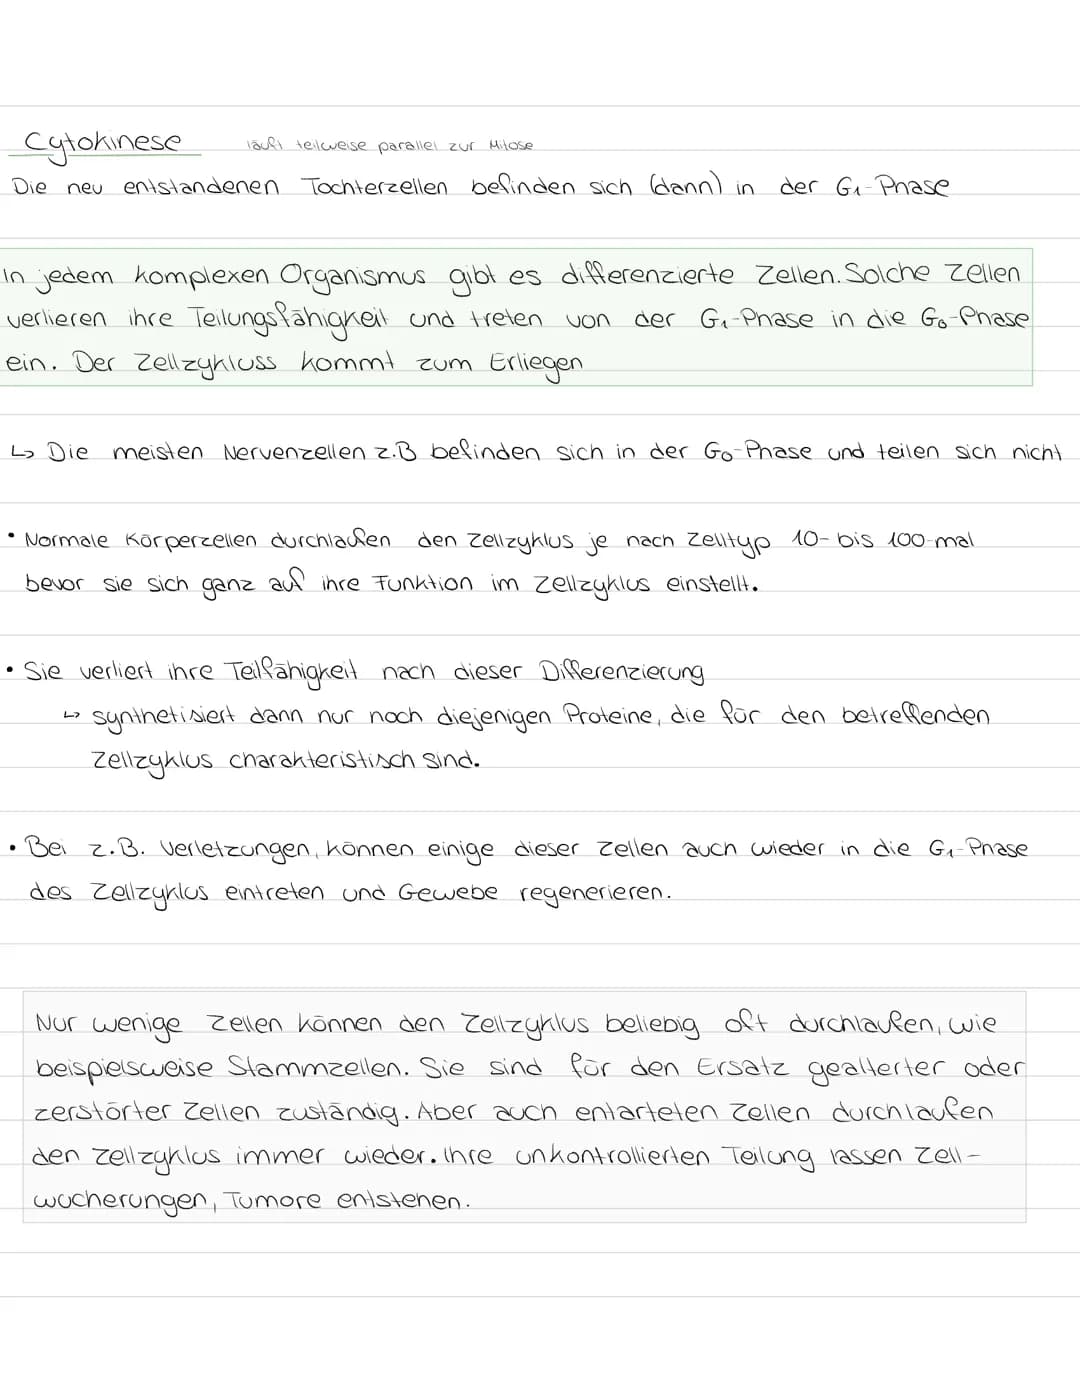 Cytokinese läuft teilweise parallel zur Mitose
Die neu entstandenen Tochterzellen befinden sich (dann) in der G₁-Phase
In jedem komplexen Organismus gibt es differenzierte Zellen. Solche Zellen
verlieren ihre Teilungsfähigkeit und treten von der G₁-Phase in die G₀-Phase
ein. Der Zellzykluss kommt zum Erliegen
↳ Die meisten Nervenzellen z.B befinden sich in der G₀-Phase und teilen sich nicht
• Normale Körperzellen durchlaufen den Zellzyklus je nach Zelltyp 10- bis 100-mal
bevor sie sich ganz auf ihre Funktion im Zellzyklus einstellt.
• Sie verliert ihre Teilfähigkeit nach dieser Differenzierung
↳ synthetisiert dann nur noch diejenigen Proteine, die für den betreffenden
Zellzyklus charakteristisch sind.
• Bei z.B. Verletzungen, können einige dieser Zellen auch wieder in die G₁-Phase
des Zellzyklus eintreten und Gewebe regenerieren.
Nur wenige Zellen können den Zellzyklus beliebig oft durchlaufen, wie
beispielsweise Stammzellen. Sie sind für den Ersatz gealterter oder
zerstörter Zellen zuständig. Aber auch entarteten Zellen durchlaufen
den Zellzyklus immer wieder. Ihre unkontrollierten Teilung lassen Zell-
wucherungen, Tumore entstehen.